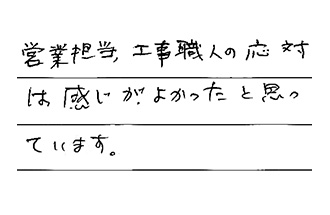 営業担当,工事職人の応対
は感じがよかったと思っ
ています。